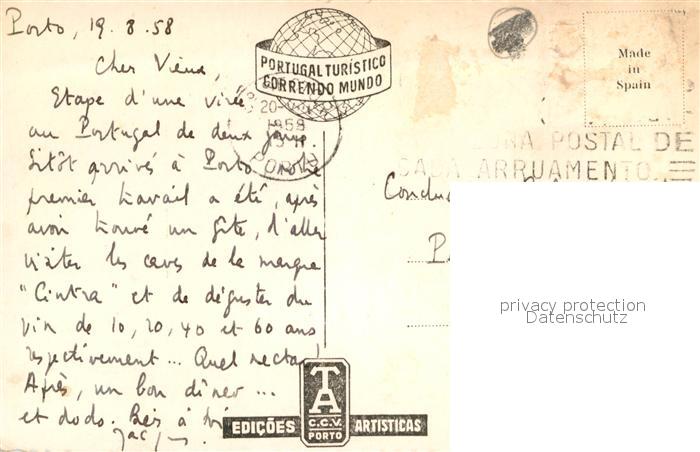 Porto, 19.8.58
Cher Vieux,
Etape d'une virée
au Portugal de deux jours.
Sitôt arrivés à Porto notre
premier travail a été, après
avoir trouvé un gîte, d'aller
visiter les caves de la marque
"Cintra" et de déguster du
vin de 10, 20, 40 et 60 ans
respectivement... Quel nectar!
Après, un bon dîner...
et dodo. Bes à toi
PORTUGAL TURÍSTICO
CORRENDO MUNDO
1958
PORTO
Made
in
Spain
POSTAL DE
CADA ARRUAMENTO
P
privacy protection
Datenschutz
TA
C.C.V.
PORTO
EDIÇÕES ARTISTICAS